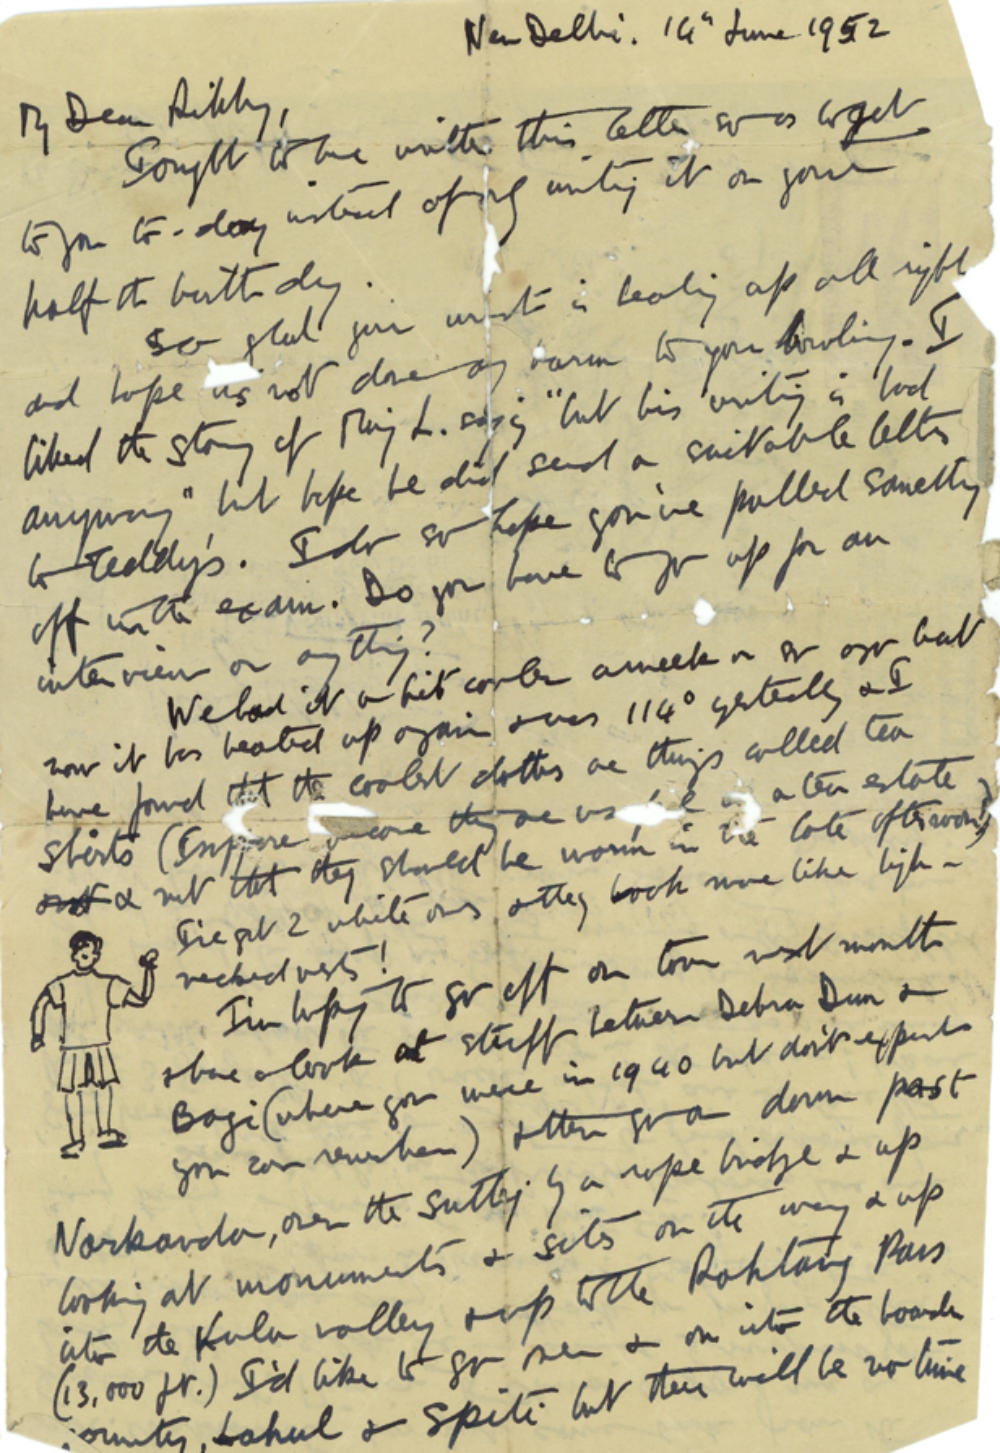 New Delhi. 14" June 1952
My Dear Rikky,
I ought to have written this letter so as to get
to you to-day instead of only writing it on your
half th birthday.
So glad your wrist is healing up all right
and hope its not done any harm to your bowling. I
liked the story of Maj L. saying "but his writing is bad
anyway" but hope he did send a suitable letter
to Teddy's. I do so hope you've pulled something
off with exam. Do you have to go up for an
interview or anything?
We had it a bit cooler a week or so ago but
now it has heated up again & was 114° yesterday & I
have found that the coolest clothes are things called tea
shirts (I suppose because they are on a tea estate
& not that they should be worn in the late afternoon)
I've got 2 white ones & they look more like high-
necked vests!
I'm hoping to go off on tour next month
& have a look at stuff between Dehra Dun &
Bagi (where you were in 1940 but don't expect
you can remember) & then go on down past
Narkanda, over the Sutlej by a rope bridge & up
looking at monuments & sites on the way & up
into the Kulu valley & up to the Rohtang Pass
(13,000 ft.) I'd like to go over & on into the border
country, Lahul & Spiti but there will be no time